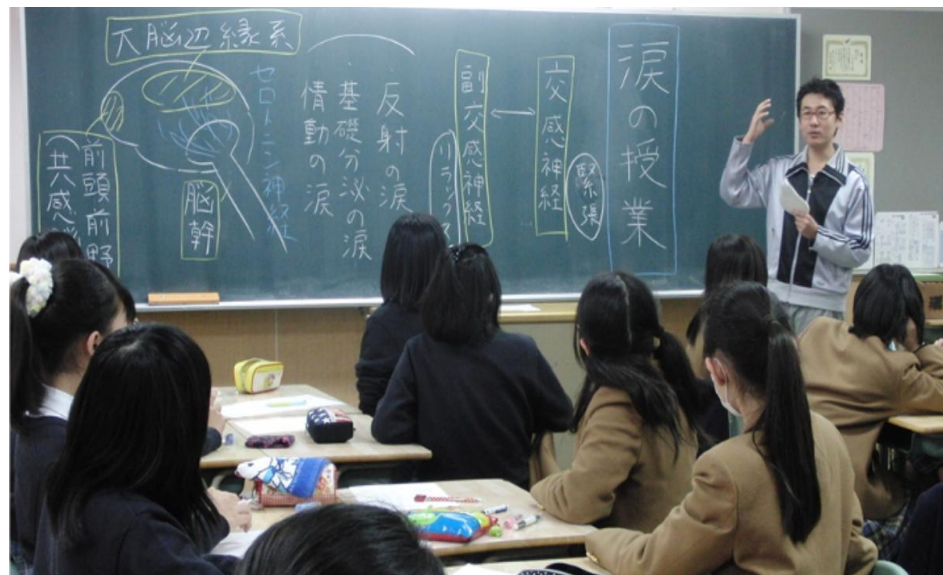 涙の授業
交感神経
緊張
副交感神経
リラックス
反射の涙
基礎分泌の涙
情動の涙
セロトニン神経
大脳辺縁系
脳幹
前頭前野
共感